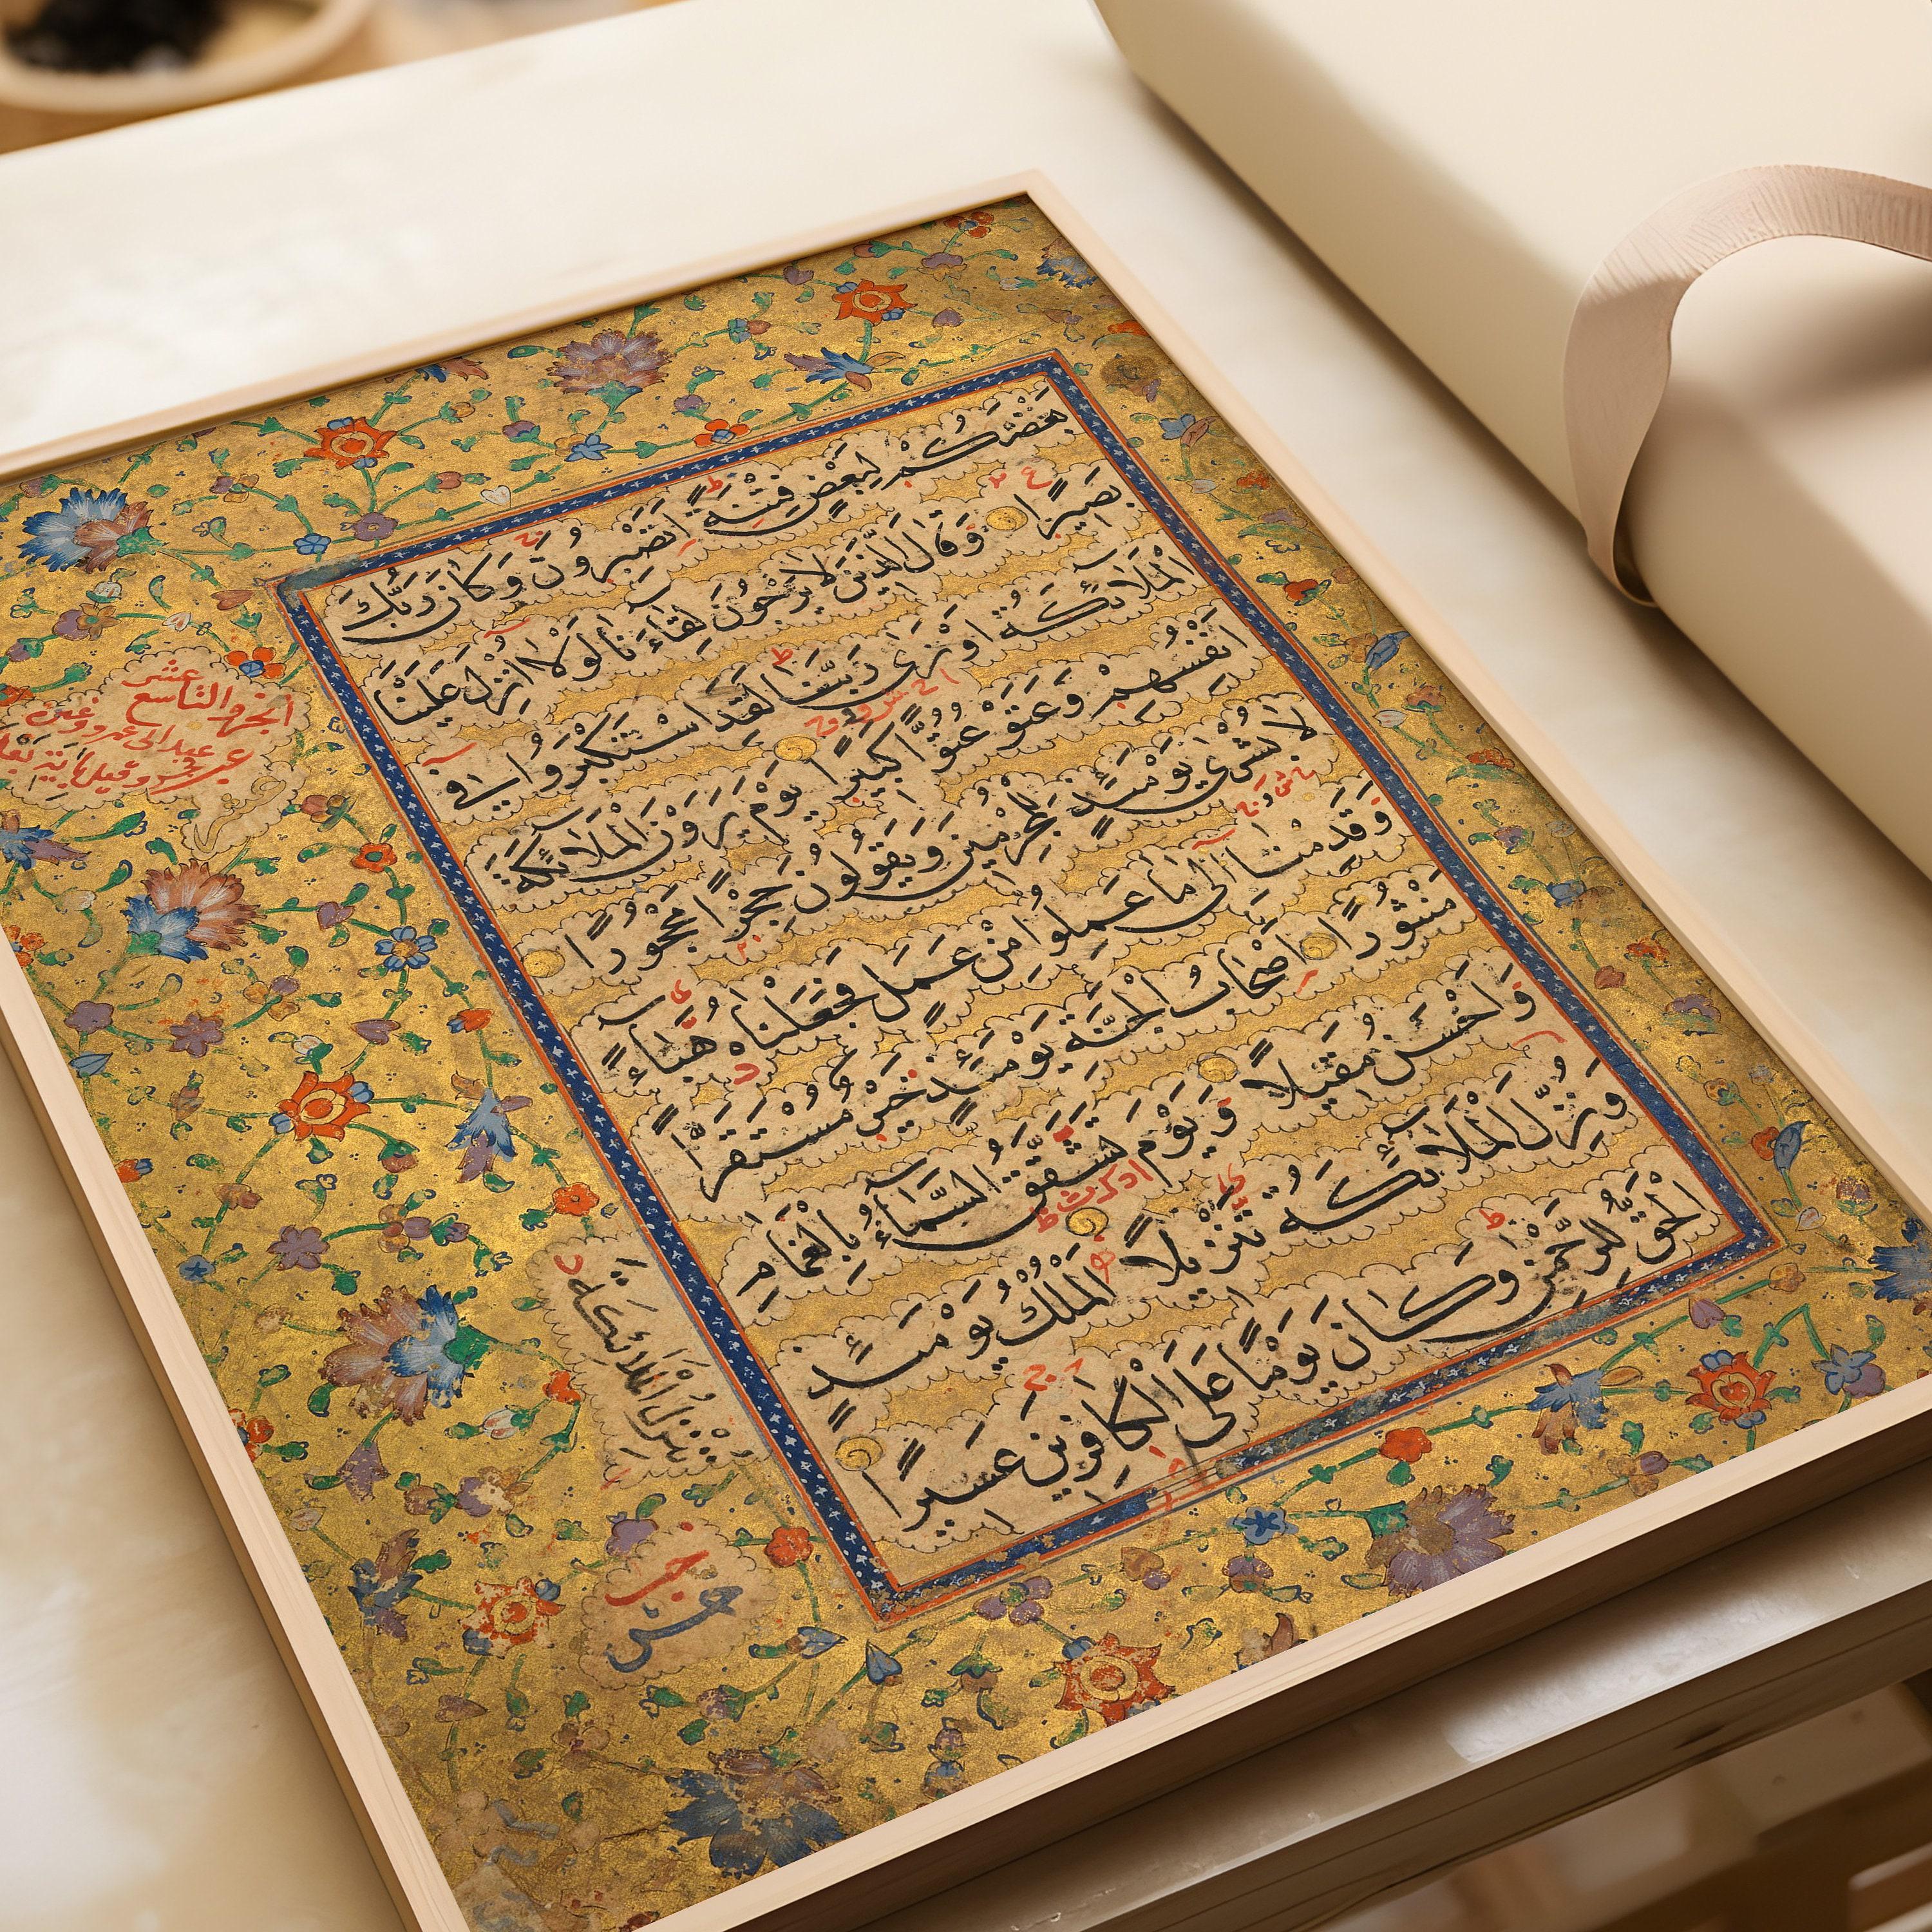 بَعْضَكُمْ لِبَعْضٍ فِتْنَةً اَتَصْبِرُونَ وَكَانَ رَبُّكَ
بَصِيرًا وَقَالَ الَّذِينَ لَا يَرْجُونَ لِقَاءَنَا لَوْلَا اُنْزِلَ عَلَيْنَا
الْمَلَائِكَةُ اَوْ نَرٰى رَبَّنَا لَقَدِ اسْتَكْبَرُوا فِى
اَنْفُسِهِمْ وَعَتَوْ عُتُوًّا كَبِيرًا يَوْمَ يَرَوْنَ الْمَلَائِكَةَ
لَا بُشْرٰى يَوْمَئِذٍ لِلْمُجْرِمِينَ وَيَقُولُونَ حِجْرًا مَحْجُورًا
وَقَدِمْنَا اِلٰى مَا عَمِلُوا مِنْ عَمَلٍ فَجَعَلْنَاهُ هَبَاءً
مَنْثُورًا اَصْحَابُ الْجَنَّةِ يَوْمَئِذٍ خَيْرٌ مُسْتَقَرًّا
وَاَحْسَنُ مَقِيلًا وَيَوْمَ تَشَقَّقُ السَّمَاءُ بِالْغَمَامِ
وَنُزِّلَ الْمَلَائِكَةُ تَنْزِيلًا اَلْمُلْكُ يَوْمَئِذٍ
الْحَقُّ لِلرَّحْمٰنِ وَكَانَ يَوْمًا عَلَى الْكَافِرِينَ عَسِيرًا
الجزو التاسع عشر
نُنْزِلُ الْمَلَائِكَةَ